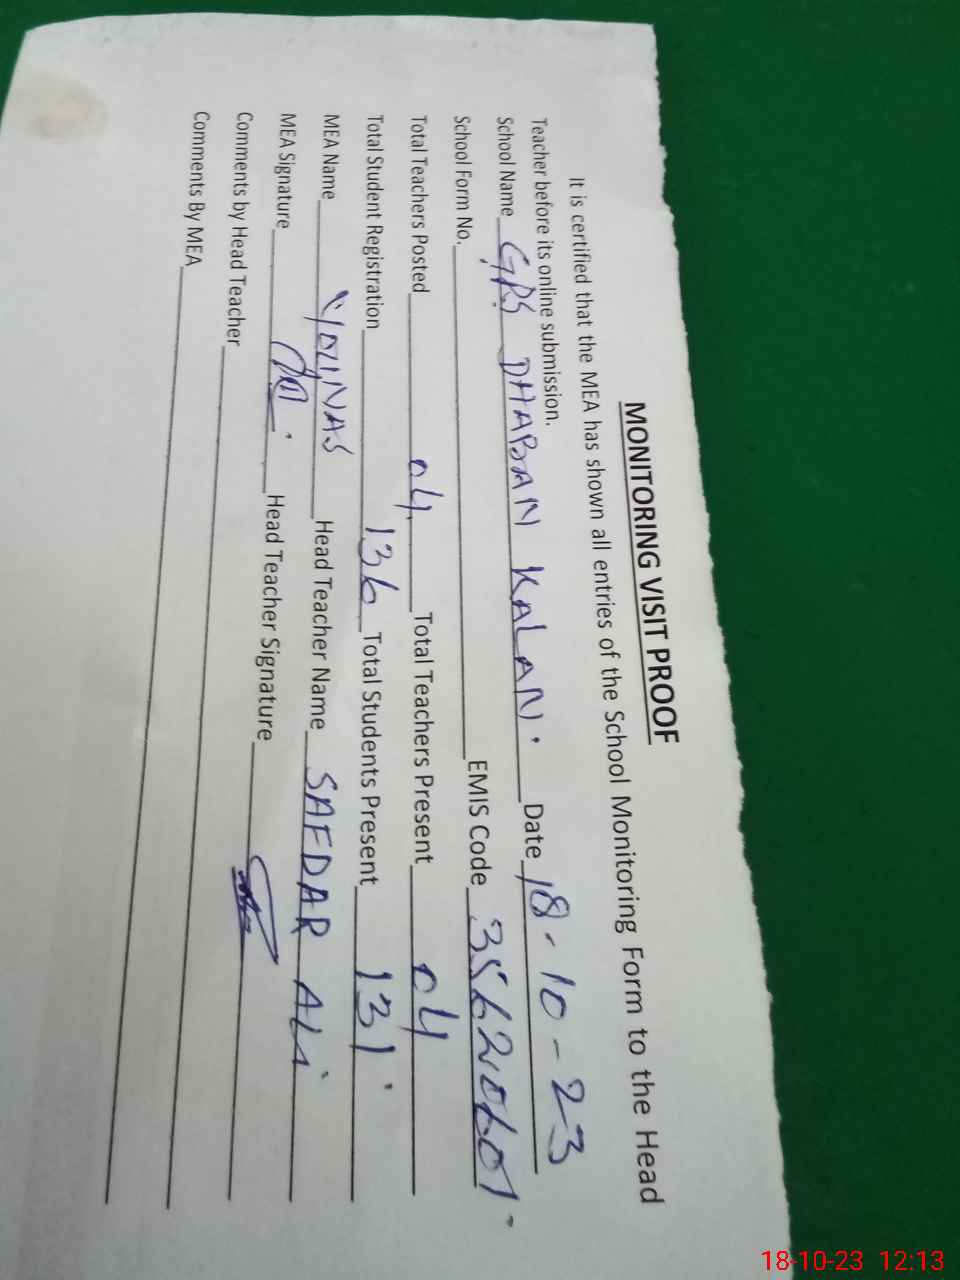 MONITORING VISIT PROOF
It is certified that the MEA has shown all entries of the School Monitoring Form to the Head
Teacher before its online submission.
School Name GPS DHABAN KALAN. Date 18-10-23
School Form No. EMIS Code 35620601
Total Teachers Posted 04 Total Teachers Present 04
Total Student Registration 136 Total Students Present 131
MEA Name YOUNAS Head Teacher Name SAFDAR ALi
MEA Signature Head Teacher Signature
Comments by Head Teacher
Comments By MEA
18-10-23 12:13